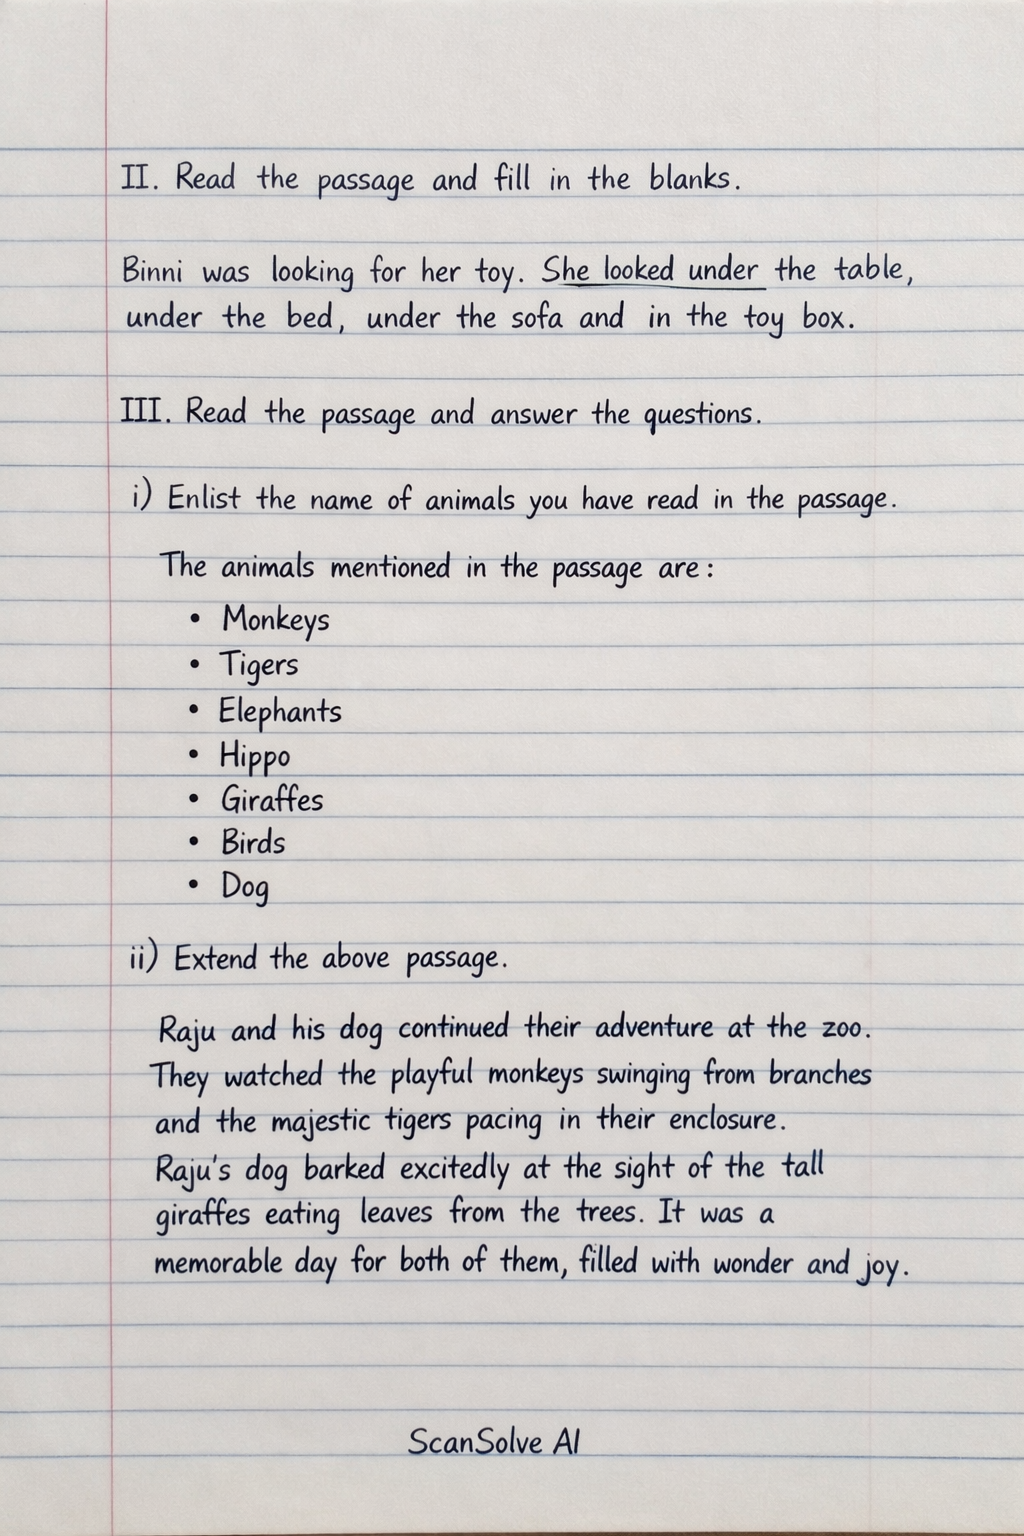 II. Read the passage and fill in the blanks.
Binni was looking for her toy. She looked under the table,
under the bed, under the sofa and in the toy box.
III. Read the passage and answer the questions.
i) Enlist the name of animals you have read in the passage.
The animals mentioned in the passage are:
• Monkeys
• Tigers
• Elephants
• Hippo
• Giraffes
• Birds
• Dog
ii) Extend the above passage.
Raju and his dog continued their adventure at the zoo.
They watched the playful monkeys swinging from branches
and the majestic tigers pacing in their enclosure.
Raju's dog barked excitedly at the sight of the tall
giraffes eating leaves from the trees. It was a
memorable day for both of them, filled with wonder and joy.
ScanSolve AI